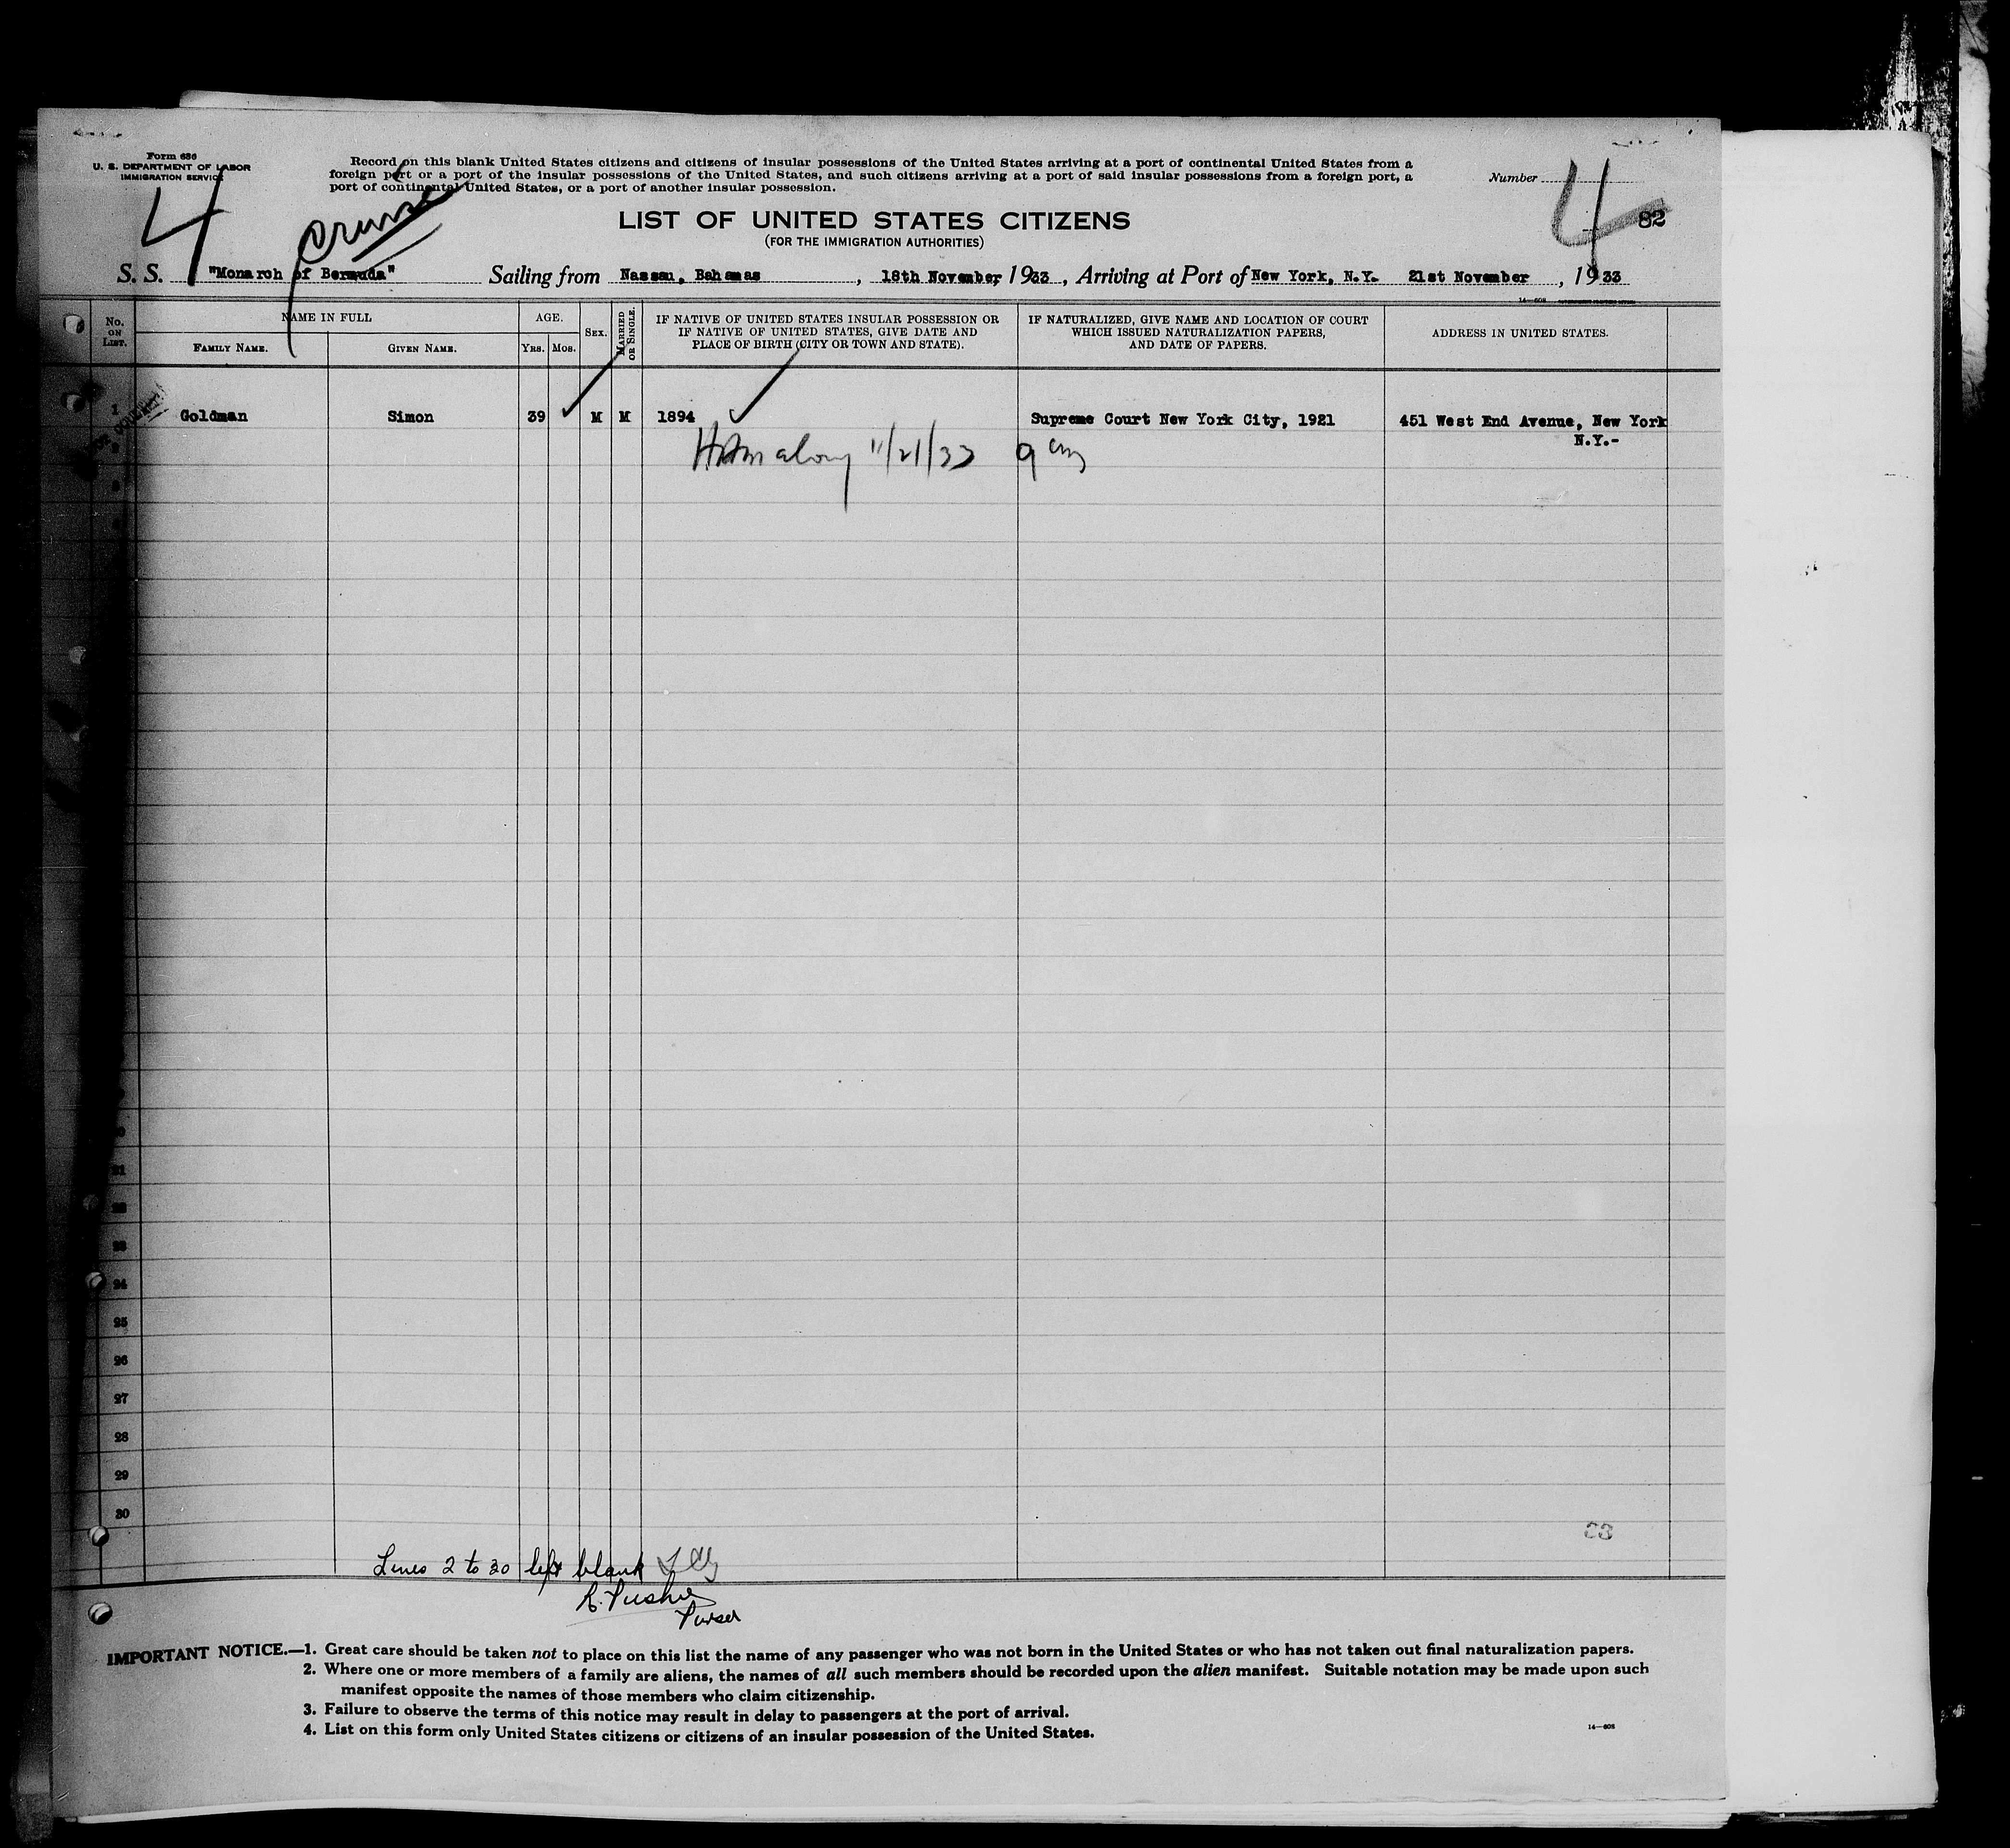 Form 686
U. S. DEPARTMENT OF LABOR
IMMIGRATION SERVICE
Record on this blank United States citizens and citizens of insular possessions of the United States arriving at a port of continental United States from a
foreign port or a port of the insular possessions of the United States, and such citizens arriving at a port of said insular possessions from a foreign port, a
port of continental United States, or a port of another insular possession.
Number
4
4
82
Cruise
LIST OF UNITED STATES CITIZENS
(FOR THE IMMIGRATION AUTHORITIES)
S. S. "Monarch of Bermuda" Sailing from Nassau, Bahamas, 18th November, 1933, Arriving at Port of New York, N.Y. 21st November, 1933
No. ON LIST.
NAME IN FULL
FAMILY NAME.
GIVEN NAME.
AGE.
YRS.
MOS.
SEX.
MARRIED OR SINGLE.
IF NATIVE OF UNITED STATES INSULAR POSSESSION OR
IF NATIVE OF UNITED STATES, GIVE DATE AND
PLACE OF BIRTH (CITY OR TOWN AND STATE).
IF NATURALIZED, GIVE NAME AND LOCATION OF COURT
WHICH ISSUED NATURALIZATION PAPERS,
AND DATE OF PAPERS.
ADDRESS IN UNITED STATES.
1 Goldman Simon 39 M M 1894 Supreme Court New York City, 1921 451 West End Avenue, New York
N.Y.-
11/21/33
24
25
26
27
28
29
30
Lines 2 to 30 left blank
Purser
IMPORTANT NOTICE.—1. Great care should be taken not to place on this list the name of any passenger who was not born in the United States or who has not taken out final naturalization papers.
2. Where one or more members of a family are aliens, the names of all such members should be recorded upon the alien manifest. Suitable notation may be made upon such
manifest opposite the names of those members who claim citizenship.
3. Failure to observe the terms of this notice may result in delay to passengers at the port of arrival.
4. List on this form only United States citizens or citizens of an insular possession of the United States.
14—608